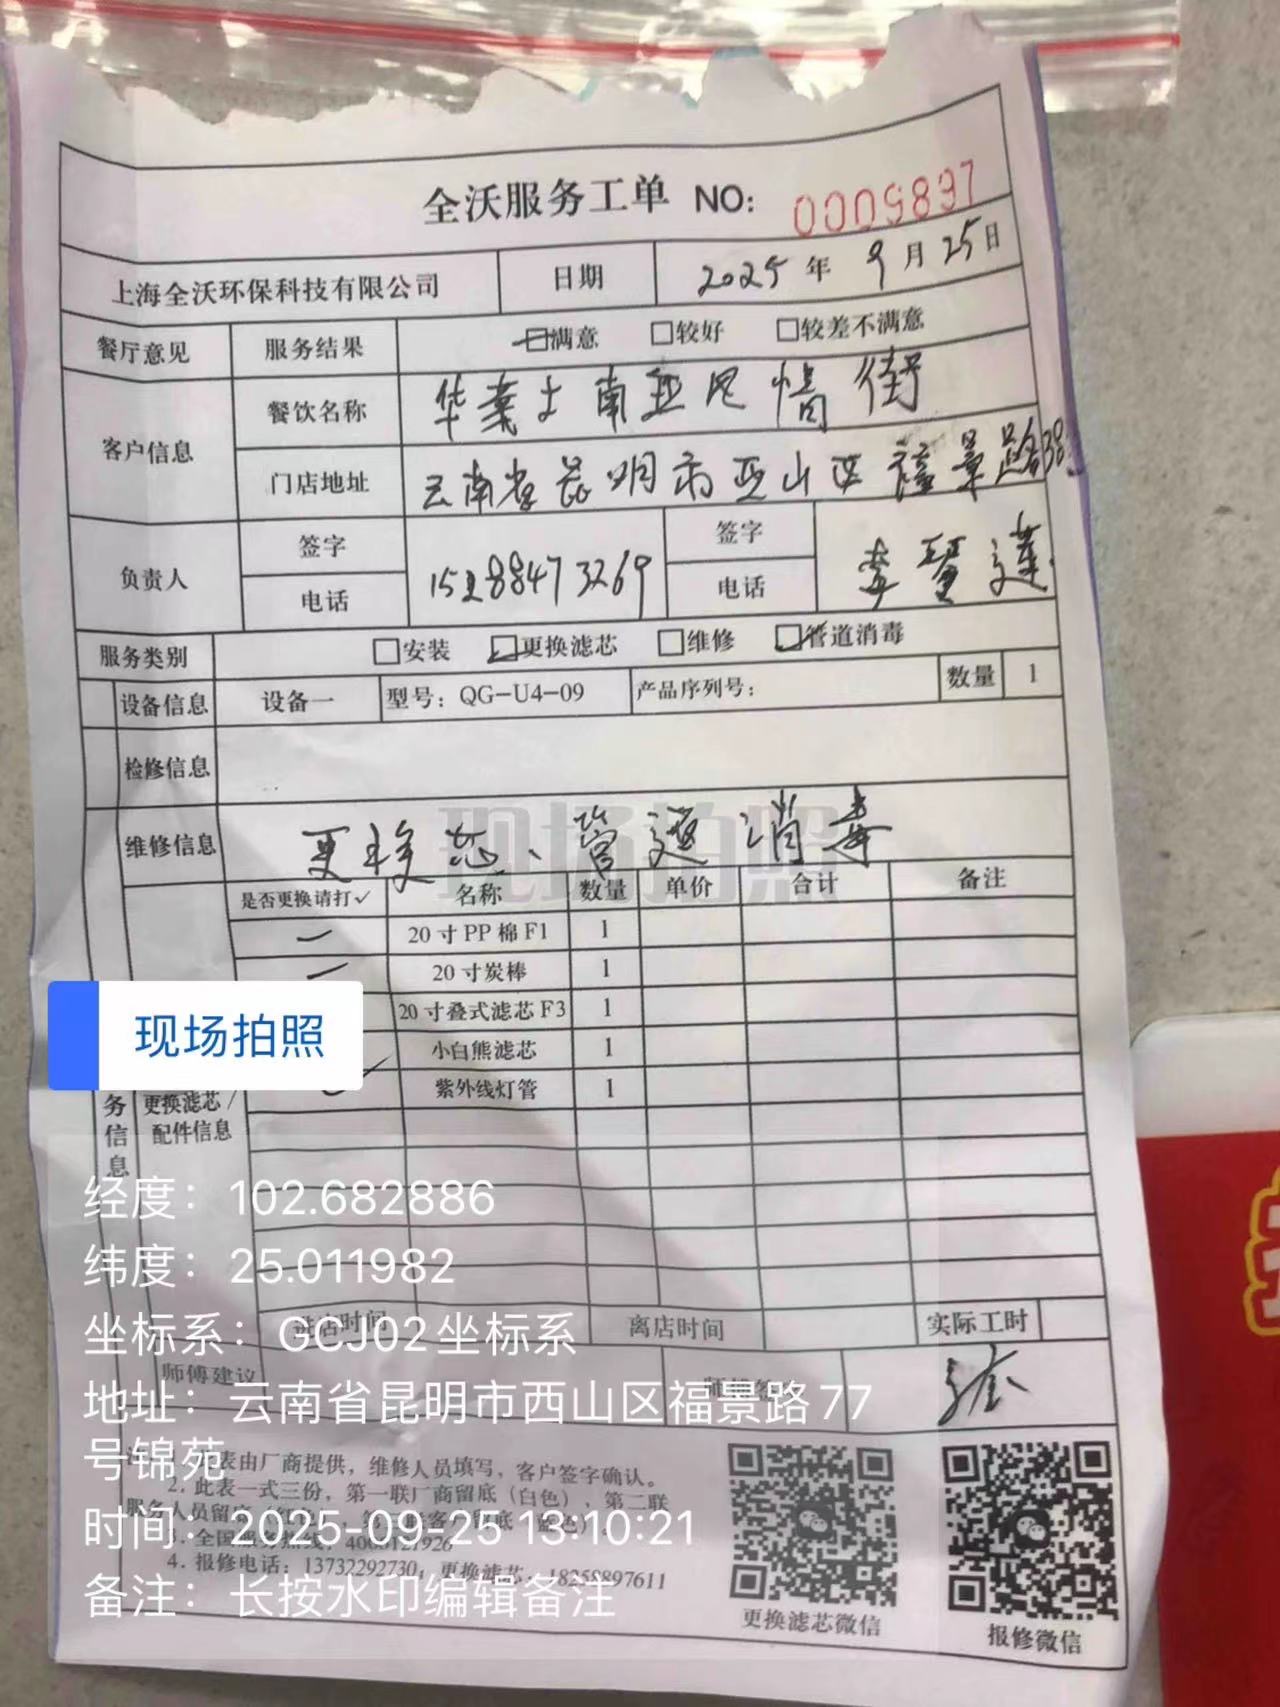 全沃服务工单 NO: 0005897
上海全沃环保科技有限公司 日期 2025年9月25日
餐厅意见 服务结果 满意 较好 较差不满意
客户信息 餐饮名称 华莱士南亚风情街
门店地址 云南省昆明市西山区福景路38
负责人 签字 电话 15288473269 签字 电话 李 莲
服务类别 安装 更换滤芯 维修 管道消毒
设备信息 设备一 型号：QG-U4-09 产品序列号： 数量 1
检修信息
维修信息 更换芯、管道消毒
现场拍照
是否更换请打✓ 名称 数量 单价 合计 备注
20寸PP棉F1 1
20寸炭棒 1
20寸叠式滤芯F3 1
小白熊滤芯 1
紫外线灯管 1
现场拍照
务信息 更换滤芯/
配件信息
进店时间 离店时间 实际工时
师傅建议 师傅签
经度：102.682886
纬度：25.011982
坐标系：GCJ02坐标系
地址：云南省昆明市西山区福景路77
号锦苑
时间：2025-09-25 13:10:21
备注：长按水印编辑备注
此表由厂商提供，维修人员填写，客户签字确认。
2.此表一式三份，第一联厂商留底（白色）、第二联
服务人员留底
全国服务热线：4000121926
4.报修电话：13732292730，更换滤芯：18258897611
更换滤芯微信 报修微信